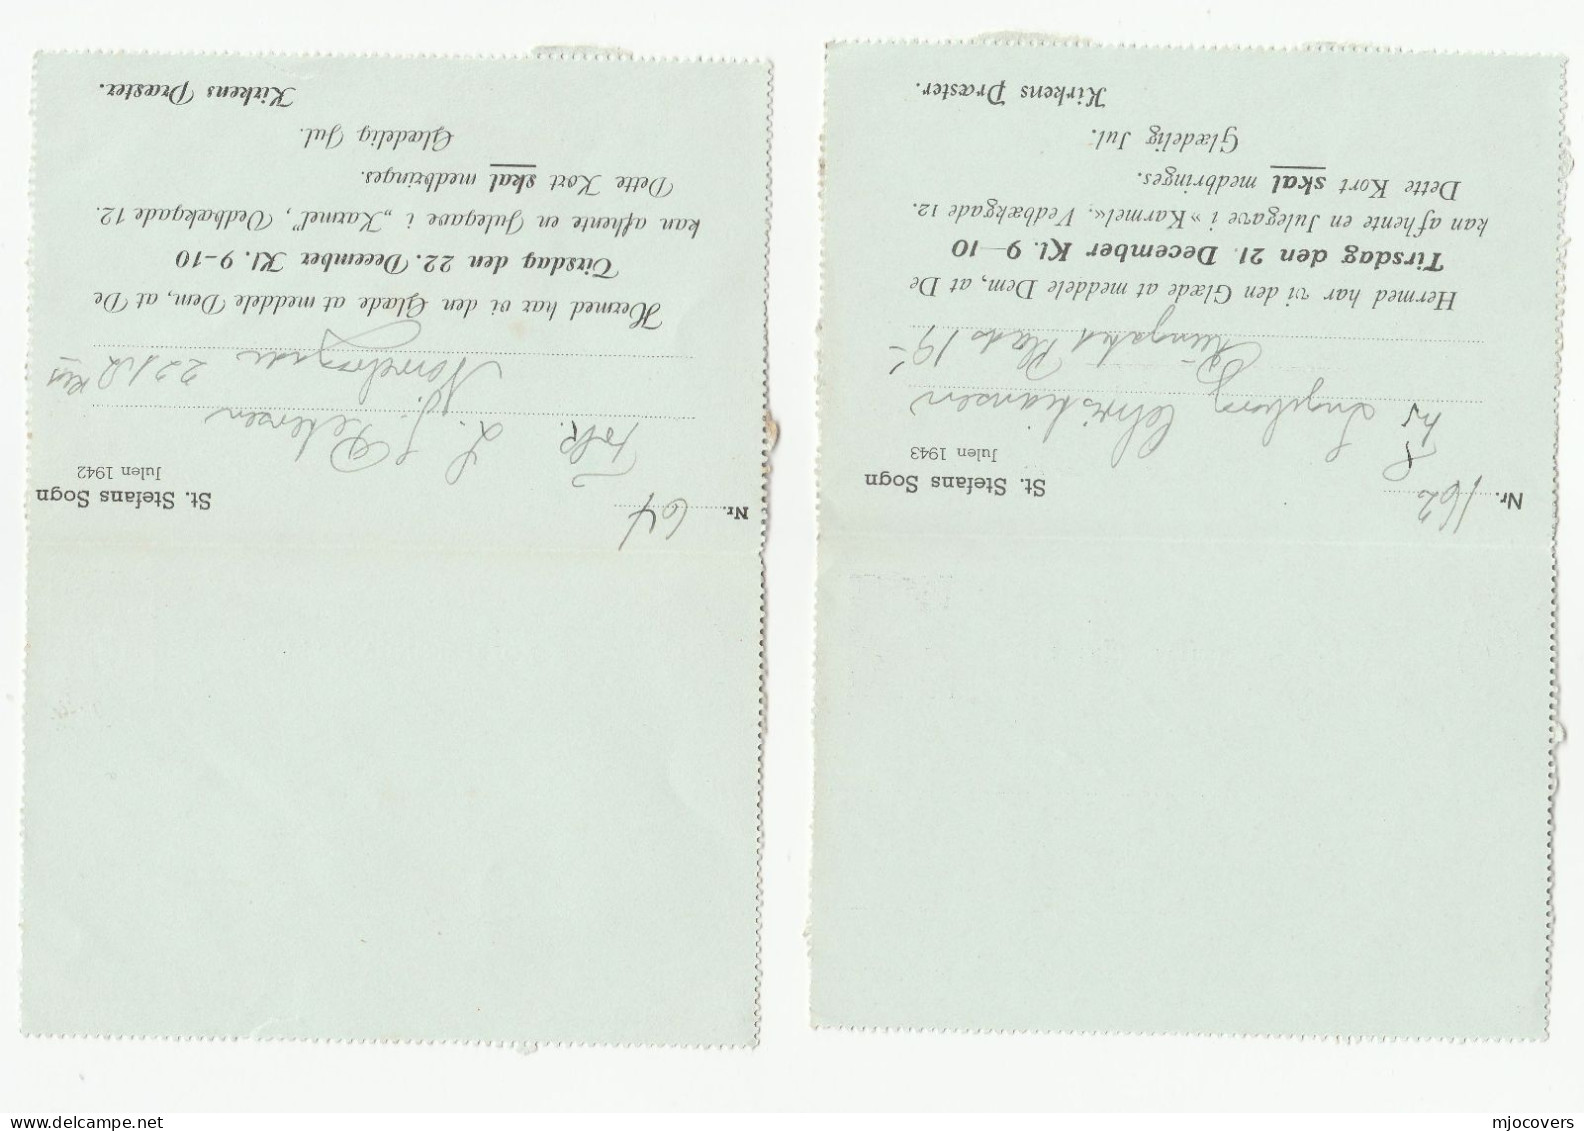 Nr. 64
St. Stefans Sogn
Julen 1942
Frk. L. J. Petersen
Nørrebrogade 221
Hermed har vi den Glæde at meddele Dem, at De
Tirsdag den 22. December Kl. 9-10
kan afhente en Julegave i „Karmel”, Vedbækgade 12.
Dette Kort skal medbringes.
Glædelig Jul.
Kirkens Præster.
Nr. 162
St. Stefans Sogn
Julen 1943
Ingeborg Christiansen
Plads 19
Hermed har vi den Glæde at meddele Dem, at De
Tirsdag den 21. December Kl. 9—10
kan afhente en Julegave i »Karmel«. Vedbækgade 12.
Dette Kort skal medbringes.
Glædelig Jul.
Kirkens Præster.
delcampe.net
mjocovers